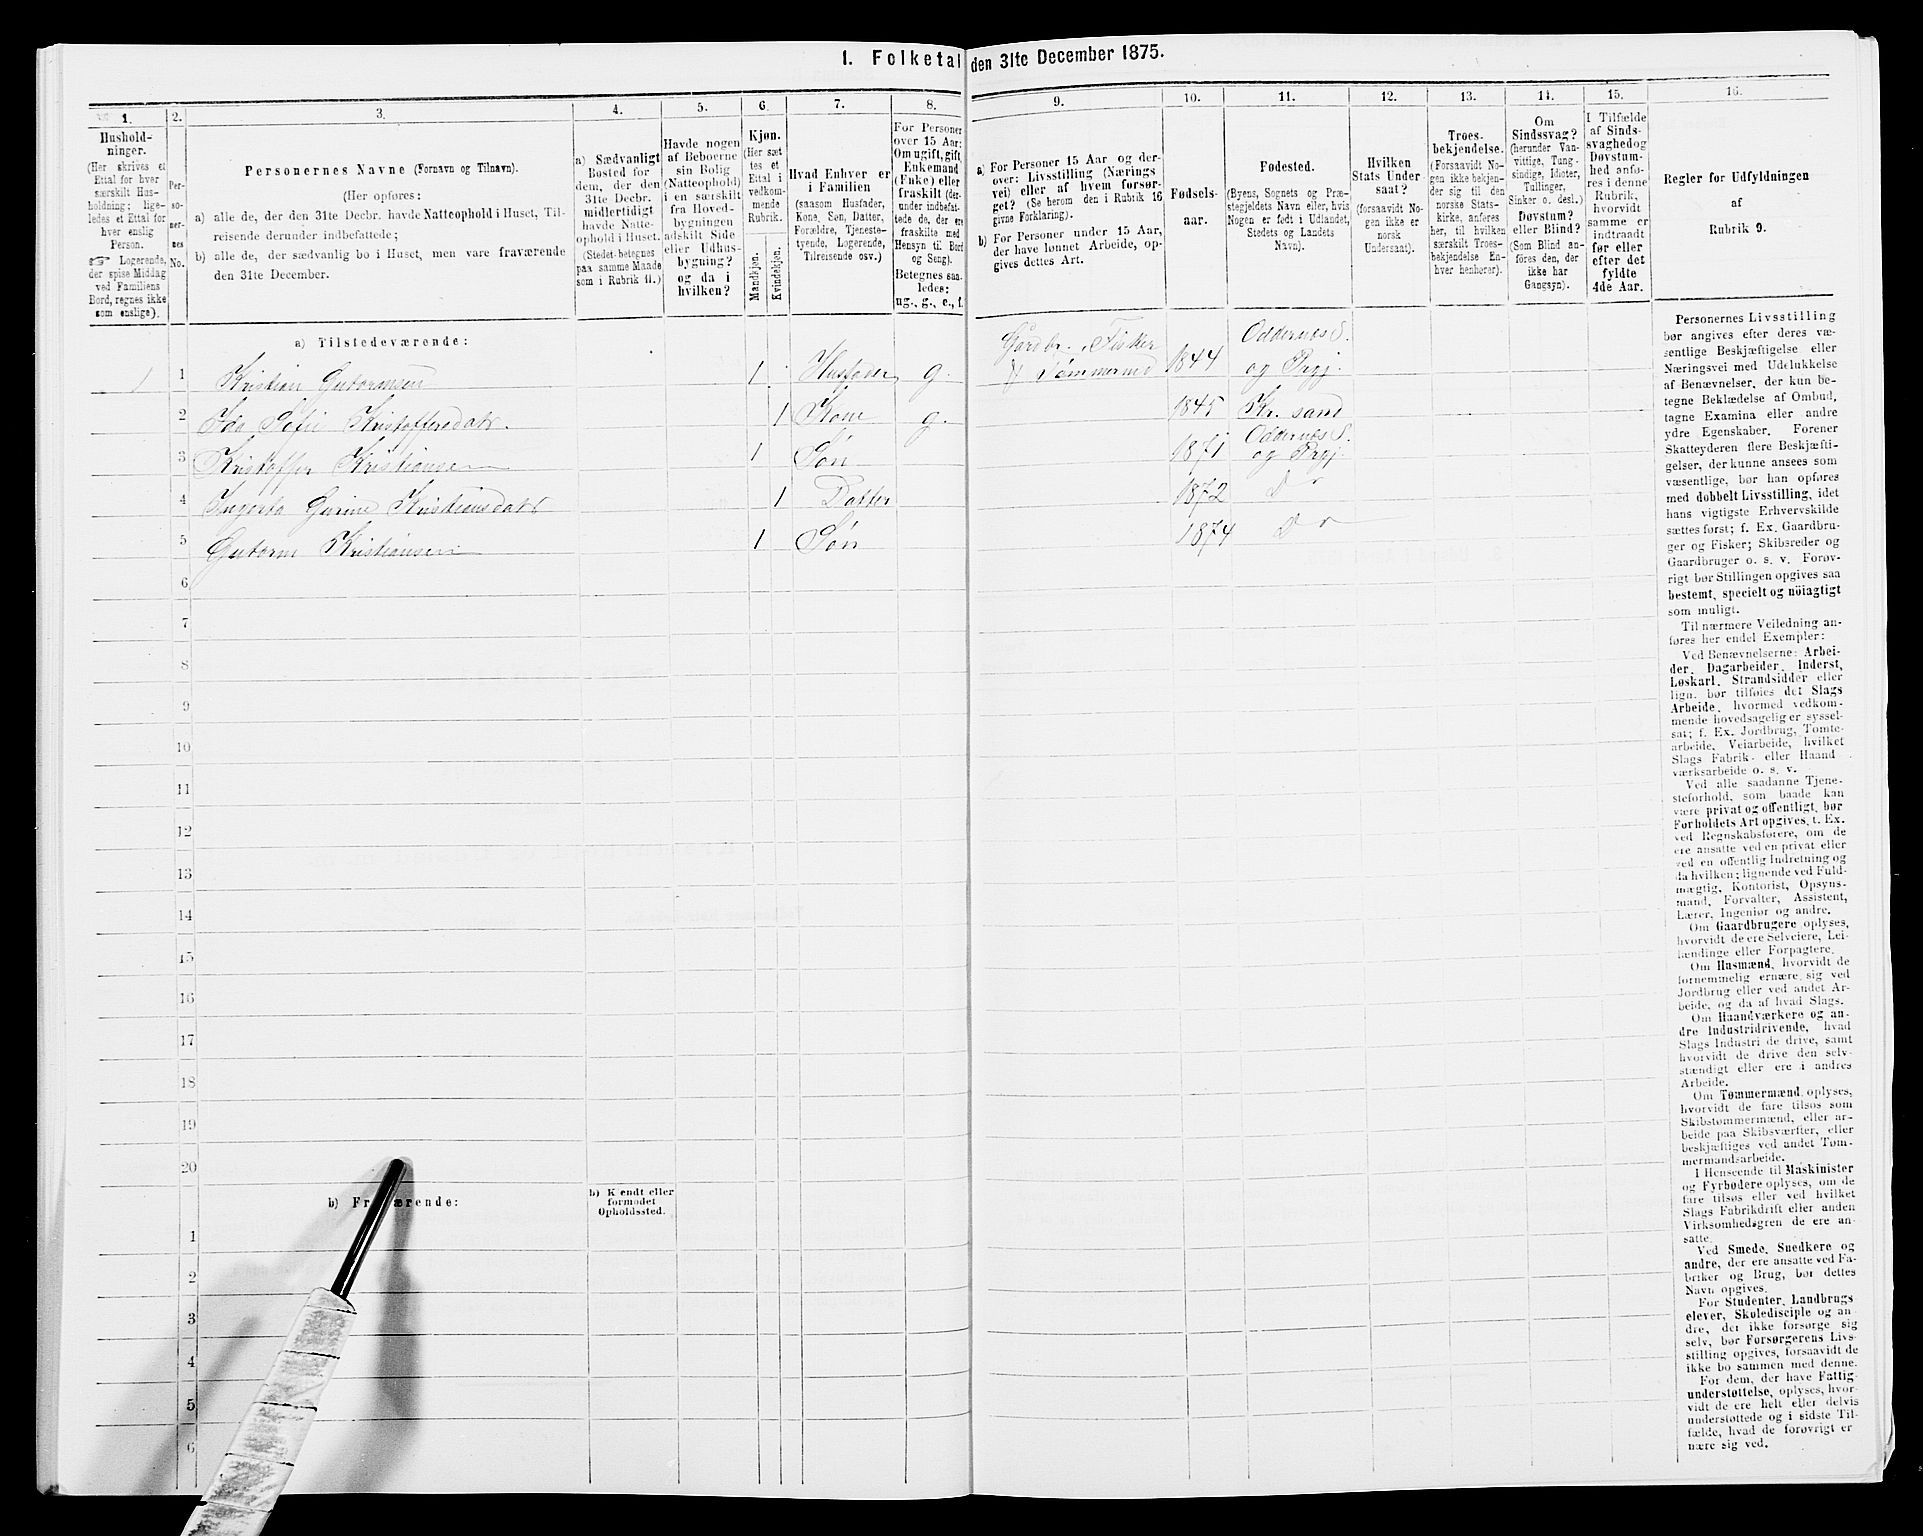 1. Folketal den 31te December 1875.
1.
Hushold-
ninger.
(Her skrives et
Ettal for hver
særskilt Hus-
holdning; lige-
ledes et Ettal for
hver enslig
Person.
☞ Logerende,
der spise Middag
ved Familiens
Bord, regnes ikke
som enslige).
2.
Per-
so-
ner-
nes
No.
3.
Personernes Navne (Fornavn og Tilnavn).
(Her opføres:
a) alle de, der den 31te Decbr. havde Natteophold i Huset, Til-
reisende derunder indbefattede;
b) alle de, der sædvanlig bo i Huset, men vare fraværende
den 31te December.
4.
a) Sædvanligt
Bosted for
dem, der den
31te Decbr.
midlertidigt
havde Natte-
ophold i Huset.
(Stedet betegnes
paa samme Maade
som i Rubrik 11.)
5.
Havde nogen
af Beboerne
sin Bolig
(Natteophold)
i en særskilt
fra Hoved-
bygningen
adskilt Side
eller Udhus-
bygning?
og da i
hvilken?
6.
Kjøn.
(Her sæt
tes et
Ettal i
vedkom-
mende
Rubrik.
Mandkjøn.
Kvindekjøn.
7.
Hvad Enhver er
i Familien
(saasom Husfader,
Kone, Søn, Datter,
Forældre, Tjeneste-
tyende, Logerende,
Tilreisende osv.)
8.
For Personer
over 15 Aar:
Om ugift, gift,
Enkemand
(Enke) eller
fraskilt (der-
under indbefat-
tede de, der ere
fraskilte med
Hensyn til Bord
og Seng).
Betegnes saa-
ledes:
ug., g., e., f.
9.
a) For Personer 15 Aar og der-
over: Livsstilling (Nærings
vei) eller af hvem forsør-
get? (Se herom den i Rubrik 16
givne Forklaring).
b) For Personer under 15 Aar,
der have lønnet Arbeide, op-
gives dettes Art.
10.
Fødsels-
aar.
11.
Fødested.
(Byens, Sognets og Præ-
stegjeldets Navn eller, hvis
Nogen er født i Udlandet,
Stedets og Landets
Navn).
12.
Hvilken
Stats Under
saat?
(forsaavidt No-
gen ikke er
norsk
Undersaat).
13.
Troes-
bekjendelse.
(Forsaavidt No-
gen ikke bekjen-
der sig til den
norske Stats-
kirke, anføres
her, til hvilken
særskilt Troes-
bekjendelse En-
hver henhører).
14.
Om
Sindssvag?
(herunder Van-
vittige, Tung-
sindige, Idioter,
Tullinger,
Sinker o. desl.)
Døvstum?
eller Blind?
(Som Blind an-
føres den, der
ikke har
Gangsyn).
15.
I Tilfælde
af Sinds-
svaghed og
Døvstum-
hed anfø-
res i denne
Rubrik,
hvorvidt
samme er
indtraadt
før eller
efter det
fyldte
4de Aar.
16.
Regler for Udfyldningen
af
Rubrik 9.
a) Tilstedeværende:
1 1 Kristian Gutormsen 1 Husfader g. Gårdbr., Fisker
& Tømmermd 1844 Oddernæs S.
og Prgj.
2 Ida Sofie Kristoffersdatr. 1 Kone g. 1845 Kr. sand
3 Kristoffer Kristiansen 1 Søn 1871 Oddernæs S.
og Prgj.
4 Ingerta Gurine Kristiansdatr 1 Datter 1872 Do
5 Gutorm Kristiansen 1 Søn 1874 Do
6
7
8
9
10
11
12
13
14
15
16
17
18
19
20
b) Fraværende:
b) Kjendt eller
formodet
Opholdssted.
1
2
3
4
5
6
Personernes Livsstilling
bør angives efter deres væ-
sentlige Beskjæftigelse eller
Næringsvei med Udelukkelse
af Benævnelser, der kun be-
tegne Beklædelse af Ombud,
tagne Examina eller andre
ydre Egenskaber. Forener
Skatteyderen flere Beskjæfti-
gelser, der kunne ansees som
væsentlige, bør han opføres
med dobbelt Livsstilling, idet
hans vigtigste Erhvervskilde
sættes først; f. Ex. Gaardbru-
ger og Fisker; Skibsreder og
Gaardbruger o. s. v. Forøv-
rigt bør Stillingen opgives saa
bestemt, specielt og nöiagtigt
som muligt.
Til nærmere Veiledning an-
føres her endel Exempler:
Ved Benævnelserne: Arbei-
der, Dagarbeider, Inderst,
Løskarl, Strandsidder eller
lign. bør tilføies det Slags
Arbeide, hvormed vedkom-
mende hovedsagelig er syssel-
sat; f. Ex. Jordbrug, Tomte-
arbeide, Veiarbeide, hvilket
Slags Fabrik- eller Haand
værksarbeide o. s. v.
Ved alle saadanne Tjene-
steforhold, som baade kan
være privat og offentligt, bør
Forholdets Art opgives, f. Ex.
ved Regnskabsførere, om de
ere ansatte ved en privat eller
ved en offentlig Indretning og
da hvilken; lignende ved Fuld-
mægtig, Kontorist, Opsyns-
mand, Forvalter, Assistent,
Lærer, Ingeniør og andre.
Om Gaardbrugere oplyses,
hvorvidt de ere Selveiere, Lei-
lændinge eller Forpagtere.
Om Husmænd, hvorvidt de
fornemmelig ernære sig ved
Jordbrug eller ved andet Ar-
beide, og da af hvad Slags.
Om Haandværkere og an-
dre Industridrivende, hvad
Slags Industri de drive, samt
hvorvidt de drive den selv-
stændigt eller ere i andres
Arbeide.
Om Tømmermænd oplyses,
hvorvidt de fare tilsøs som
Skibstømmermænd, eller ar-
beide paa Skibsværfter, eller
beskjæftiges ved andet Tøm-
mermandsarbeide.
I Henseende til Maskinister
og Fyrbødere oplyses, om de
fare tilsøs eller ved hvilket
Slags Fabrikdrift eller anden
Virksomhedsgren de ere an-
satte.
Ved Smede, Snedkere og
andre, der ere ansatte ved Fa-
briker og Brug, bør dettes
Navn opgives.
For Studenter, Landbrugs
elever, Skoledisciple og an-
dre, der ikke forsørge sig
selv, bør Forsørgerens Livs-
stilling opgives, forsaavidt de
ikke bo sammen med denne.
For dem, der have Fattig-
understøttelse, oplyses, hvor-
vidt de ere helt eller delvis
understøttede og i sidste Til-
fælde, hvad de forøvrigt er
nære sig ved.